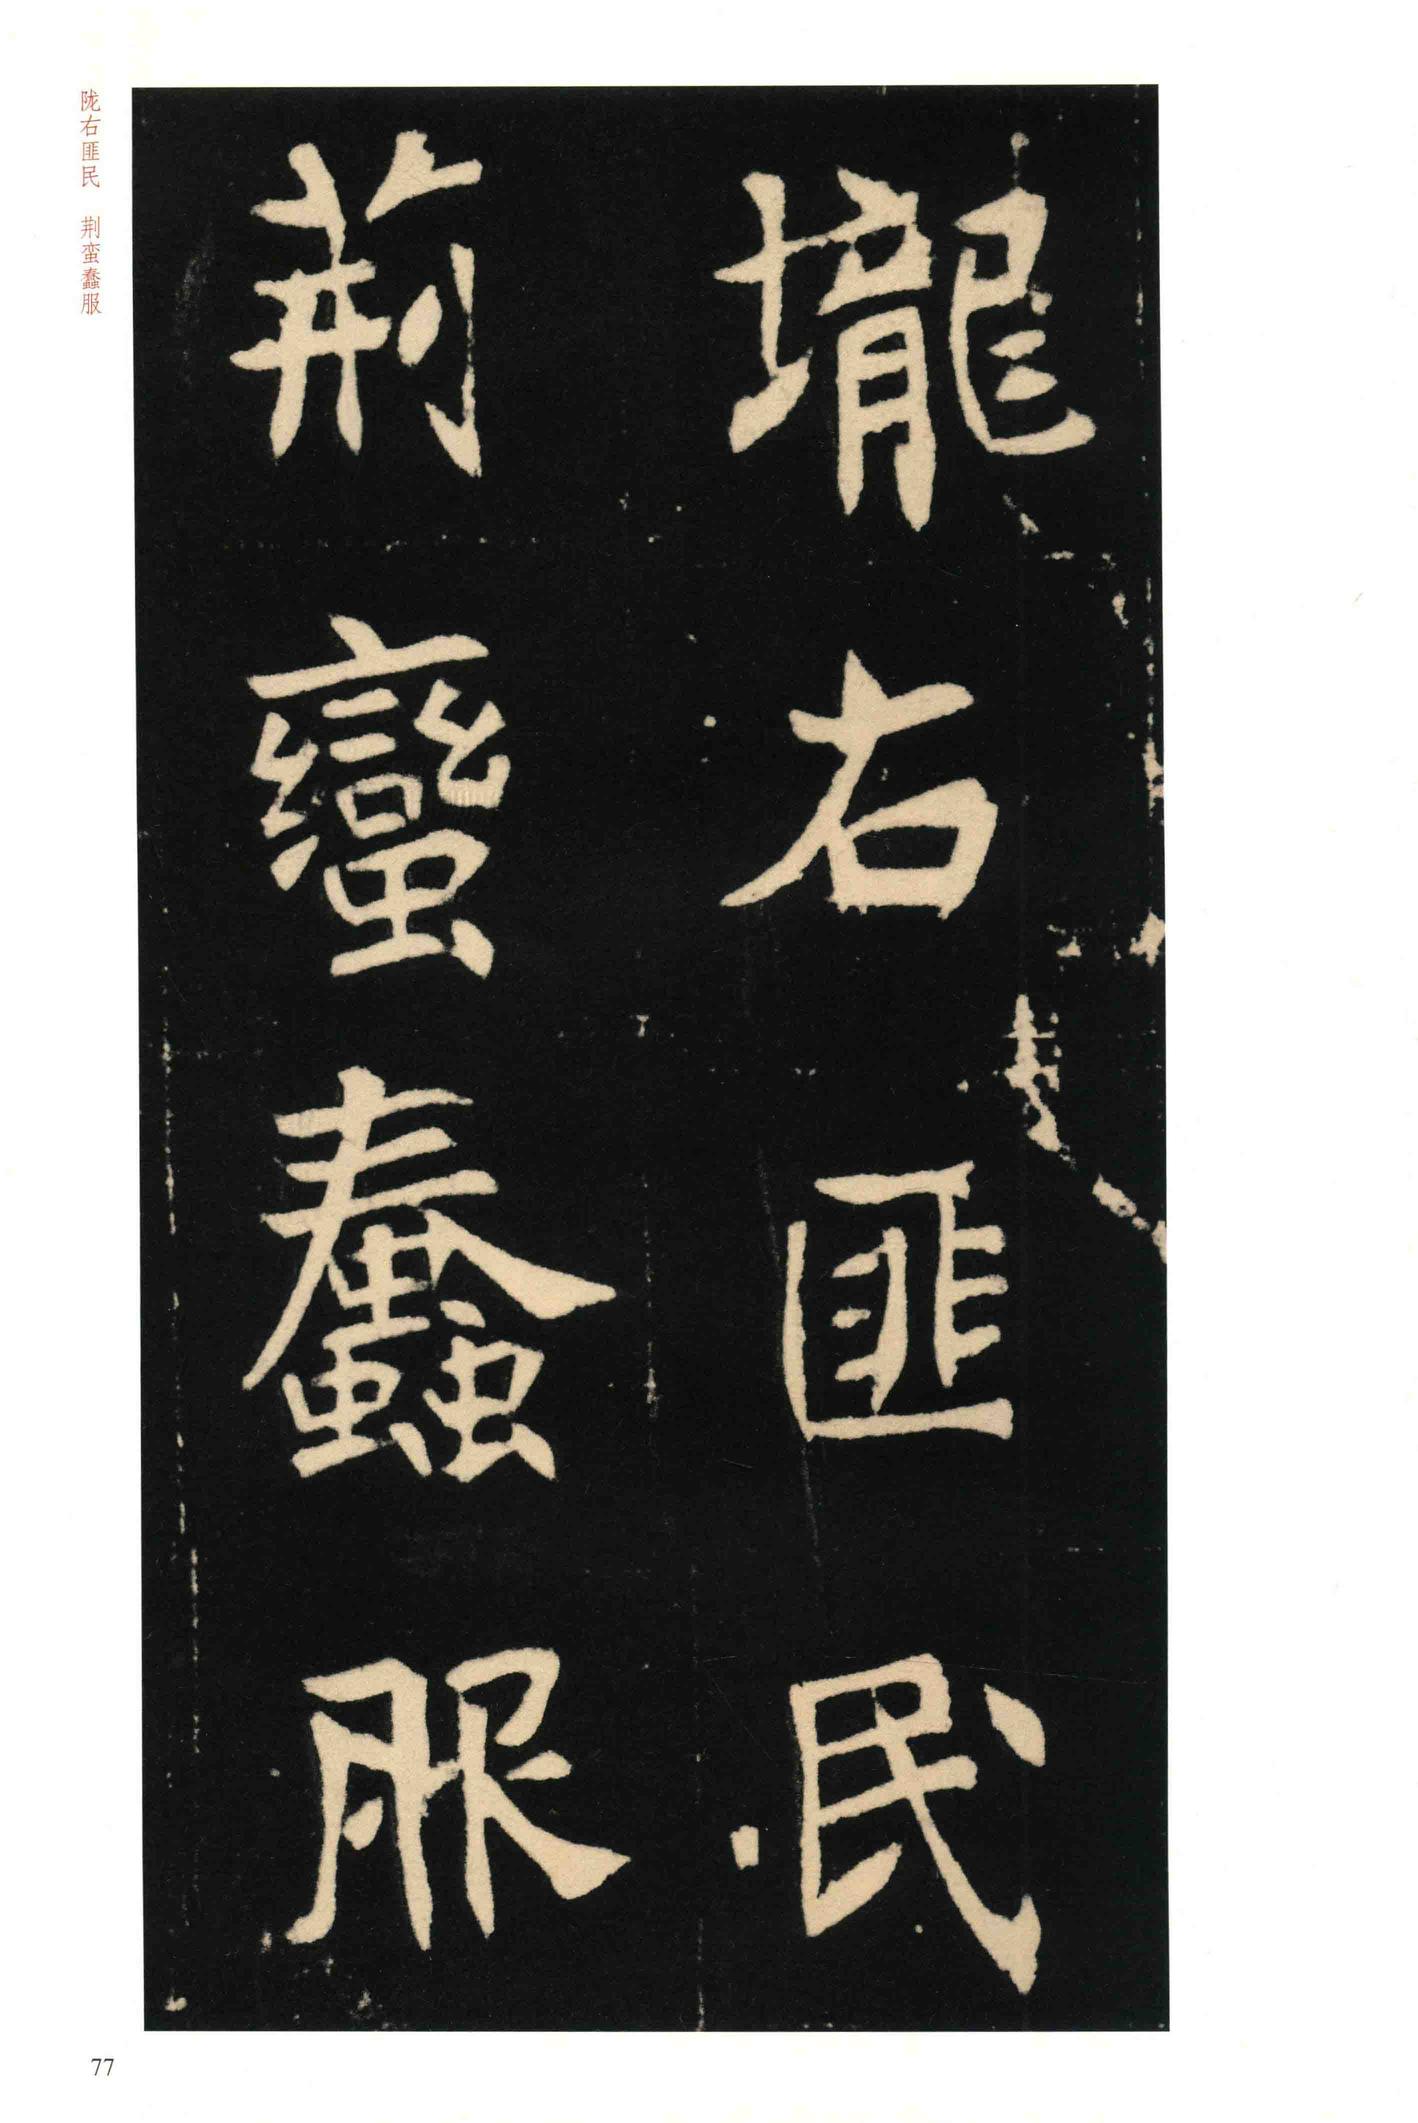 壠右匪民
荊蠻蠢服
陇右匪民 荆蛮蠢服
77